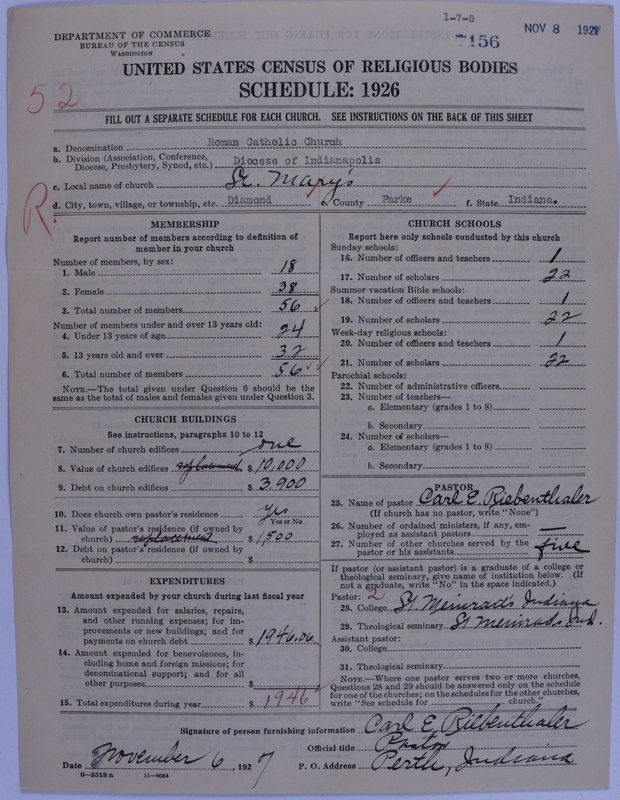 1-7-8
DEPARTMENT OF COMMERCE
BUREAU OF THE CENSUS
WASHINGTON
7156
NOV 8 1927
UNITED STATES CENSUS OF RELIGIOUS BODIES
SCHEDULE: 1926
52
FILL OUT A SEPARATE SCHEDULE FOR EACH CHURCH. SEE INSTRUCTIONS ON THE BACK OF THIS SHEET
a. Denomination Roman Catholic Church
b. Division (Association, Conference, Diocese, Presbytery, Synod, etc.) Diocese of Indianapolis
c. Local name of church St. Mary's
R.
d. City, town, village, or township, etc. Diamond e. County Parke f. State Indiana.
MEMBERSHIP
Report number of members according to definition of
member in your church
Number of members, by sex:
1. Male 18
2. Female 38
3. Total number of members 56
Number of members under and over 13 years old:
4. Under 13 years of age 24
5. 13 years old and over 32
6. Total number of members 56
NOTE.—The total given under Question 6 should be
same as the total of males and females given under Question 3.
CHURCH BUILDINGS
See instructions, paragraphs 10 to 12
7. Number of church edifices one
8. Value of church edifices replacement $ 10,000
9. Debt on church edifices $ 3,900
10. Does church own pastor's residence Yes
Yes or No
11. Value of pastor's residence (if owned by
church) replacement $ 1,500
12. Debt on pastor's residence (if owned by
church) $
EXPENDITURES
Amount expended by your church during last fiscal year
13. Amount expended for salaries, repairs,
and other running expenses; for im-
provements or new buildings; and for
payments on church debt $ 1946.06
14. Amount expended for benevolences, in-
cluding home and foreign missions; for
denominational support; and for all
other purposes $
15. Total expenditures during year $ 1946
CHURCH SCHOOLS
Report here only schools conducted by this church
Sunday schools:
16. Number of officers and teachers 1
17. Number of scholars 22
Summer vacation Bible schools:
18. Number of officers and teachers 1
19. Number of scholars 22
Week-day religious schools:
20. Number of officers and teachers 1
21. Number of scholars 22
Parochial schools:
22. Number of administrative officers
23. Number of teachers—
a. Elementary (grades 1 to 8)
b. Secondary
24. Number of scholars—
a. Elementary (grades 1 to 8)
b. Secondary
PASTOR
25. Name of pastor Carl E. Riebenthaler
(If church has no pastor, write "None")
26. Number of ordained ministers, if any, em-
ployed as assistant pastors —
27. Number of other churches served by the
pastor or his assistants five
If pastor (or assistant pastor) is a graduate of a college or
theological seminary, give name of institution below. (If
not a graduate, write "No" in the space indicated.)
Pastor: 2
28. College St Meinrad's Indiana
29. Theological seminary St Meinrad's Ind.
Assistant pastor:
30. College
31. Theological seminary
NOTE.—Where one pastor serves two or more churches,
Questions 28 and 29 should be answered only on the schedule
for one of the churches; on the schedules for the other churches,
write "See schedule for church."
Signature of person furnishing information Carl E. Riebenthaler
Official title Pastor
Date November 6, 1927 P. O. Address Perth, Indiana
8—5318 a 11—9024